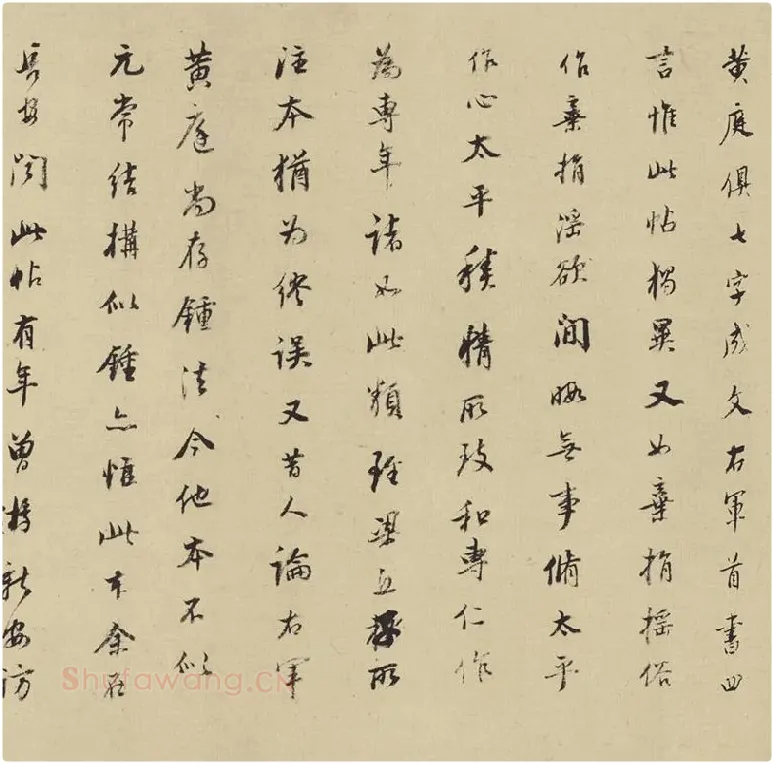 黄庭俱七字成文右军首书四
言惟此帖獨異又如棄捐搖俗
作棄捐淫欲閒暇無事脩太平
作心太平積精所致和專仁作
為專年諸如此類程梁丘子所
注本猶为佟误又昔人論右軍
黄庭尚存鍾法今他本不似
元常结構似鍾亦惟此本余在
長安閱此帖有年曾攜新安訪
Shufawang.CN